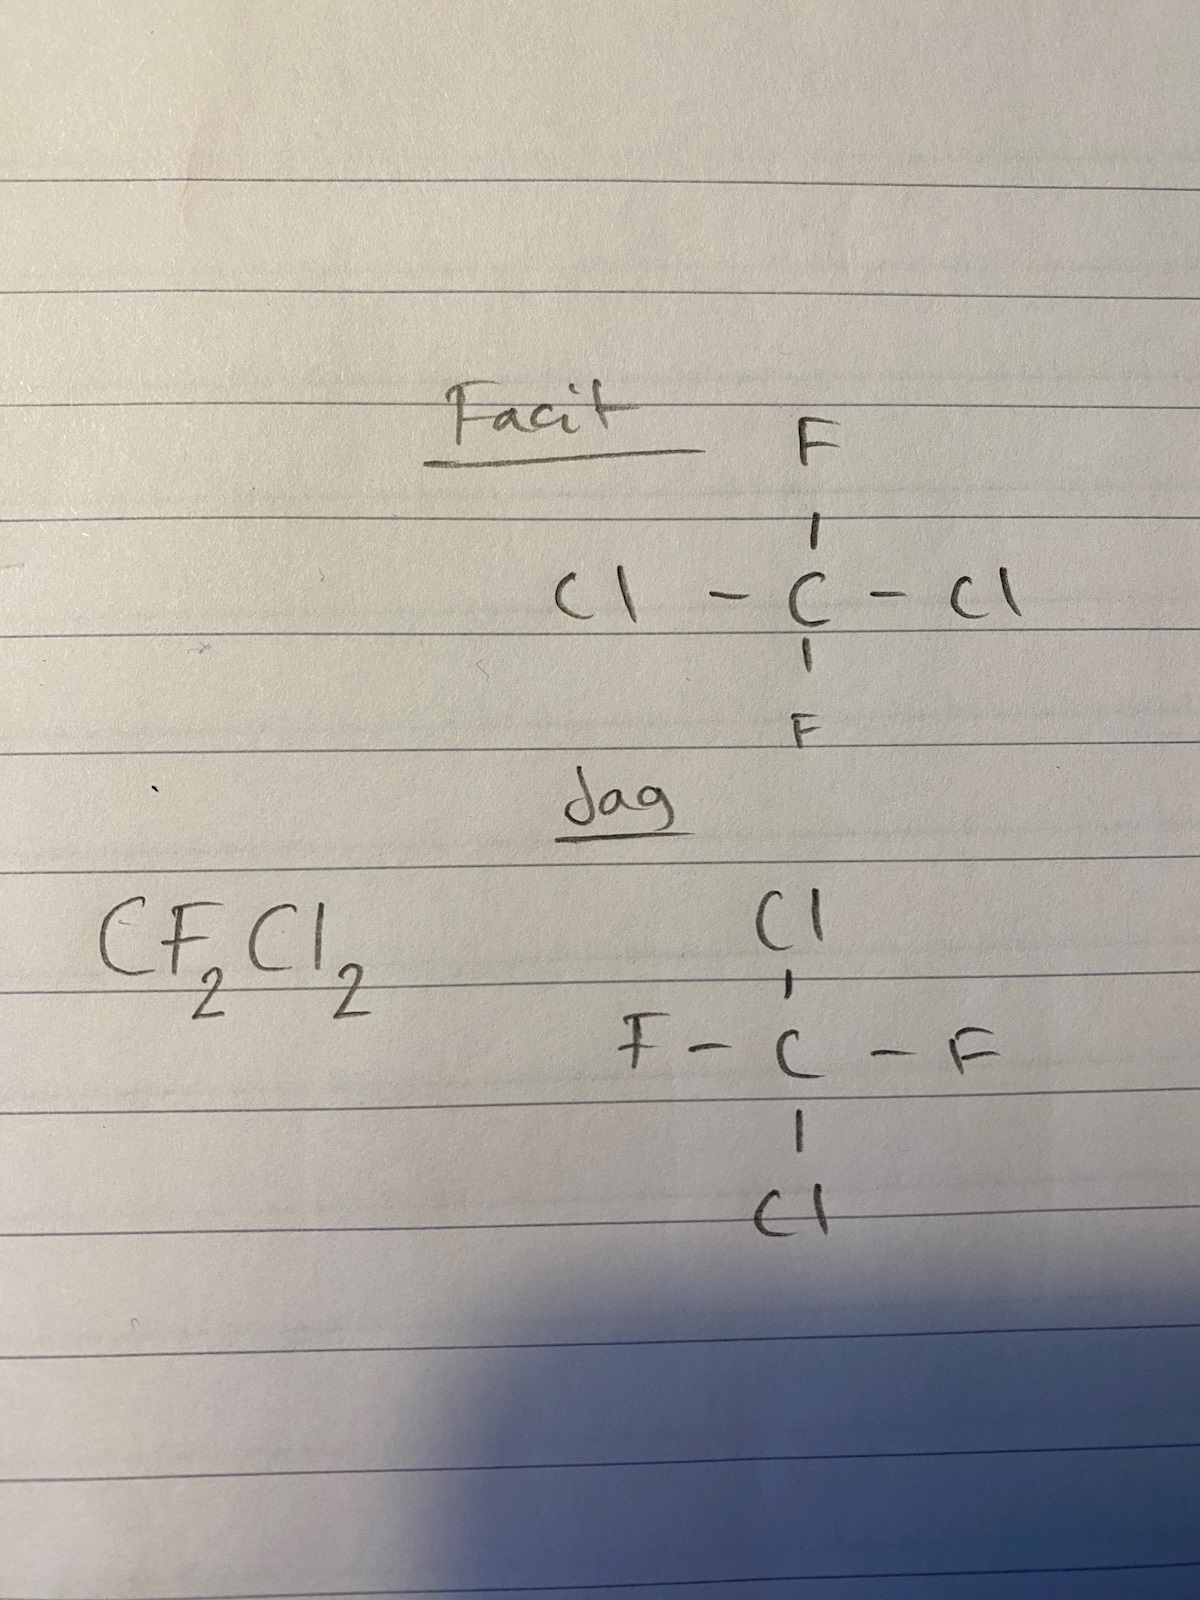 Facit
F
|
Cl - C - Cl
|
F
Jag
Cl
CF2Cl2
|
F - C - F
|
Cl